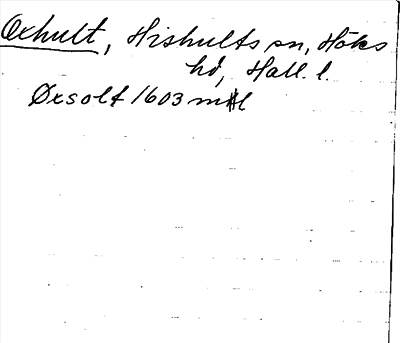 Oxhult, Hishults sn, Höks
hd, Hall. l.
Øxsolt 1603